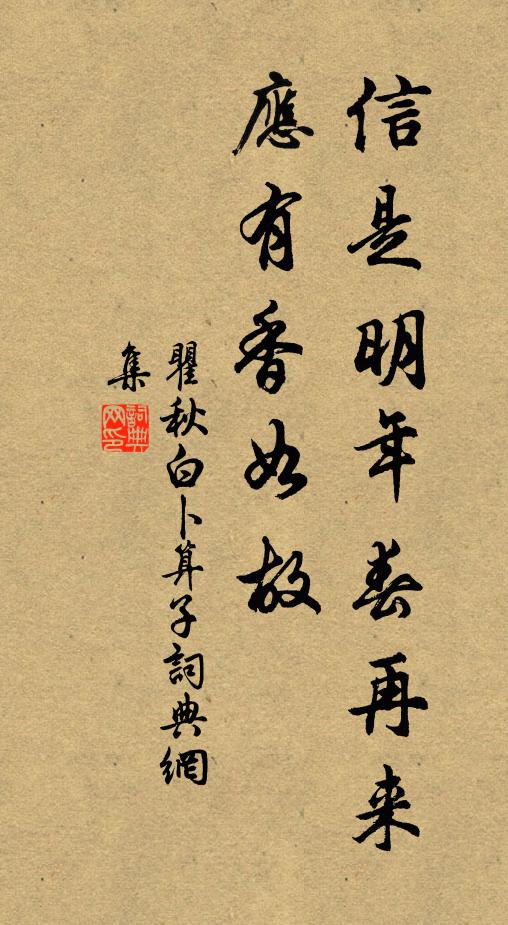 信是明年春再来
應有香如故
瞿秋白卜算子詞典網
集
詞典网印